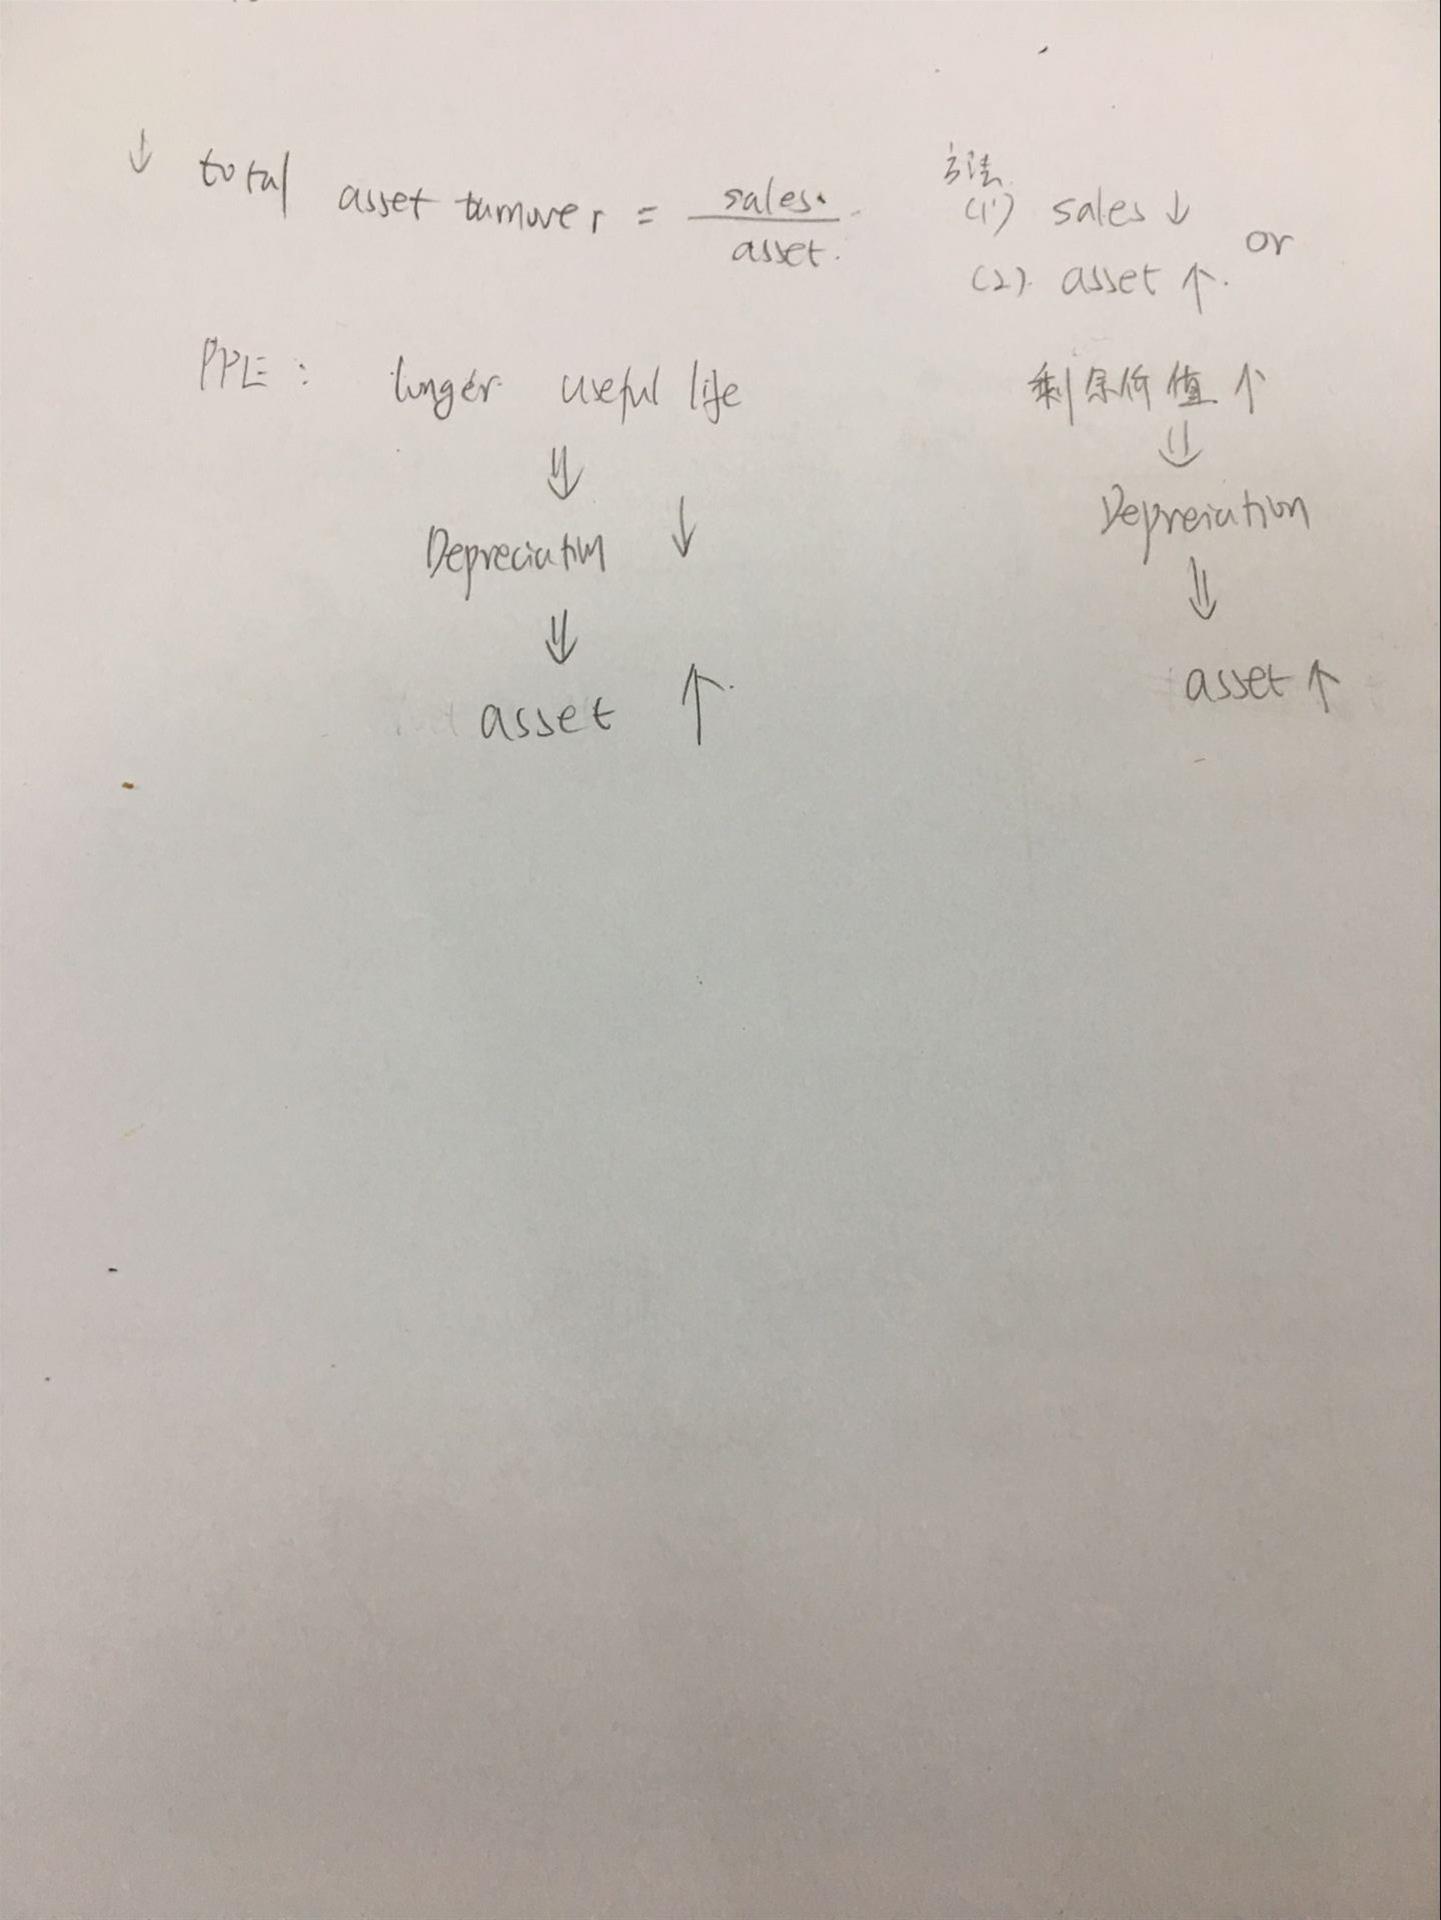 ↓ total asset turnover = sales / asset.
方法
(1) sales ↓ or
(2). asset ↑.
PPE : longer useful life
⇓
Depreciation ↓
⇓
asset ↑
剩余价值 ↑
⇓
Depreciation
⇓
asset ↑